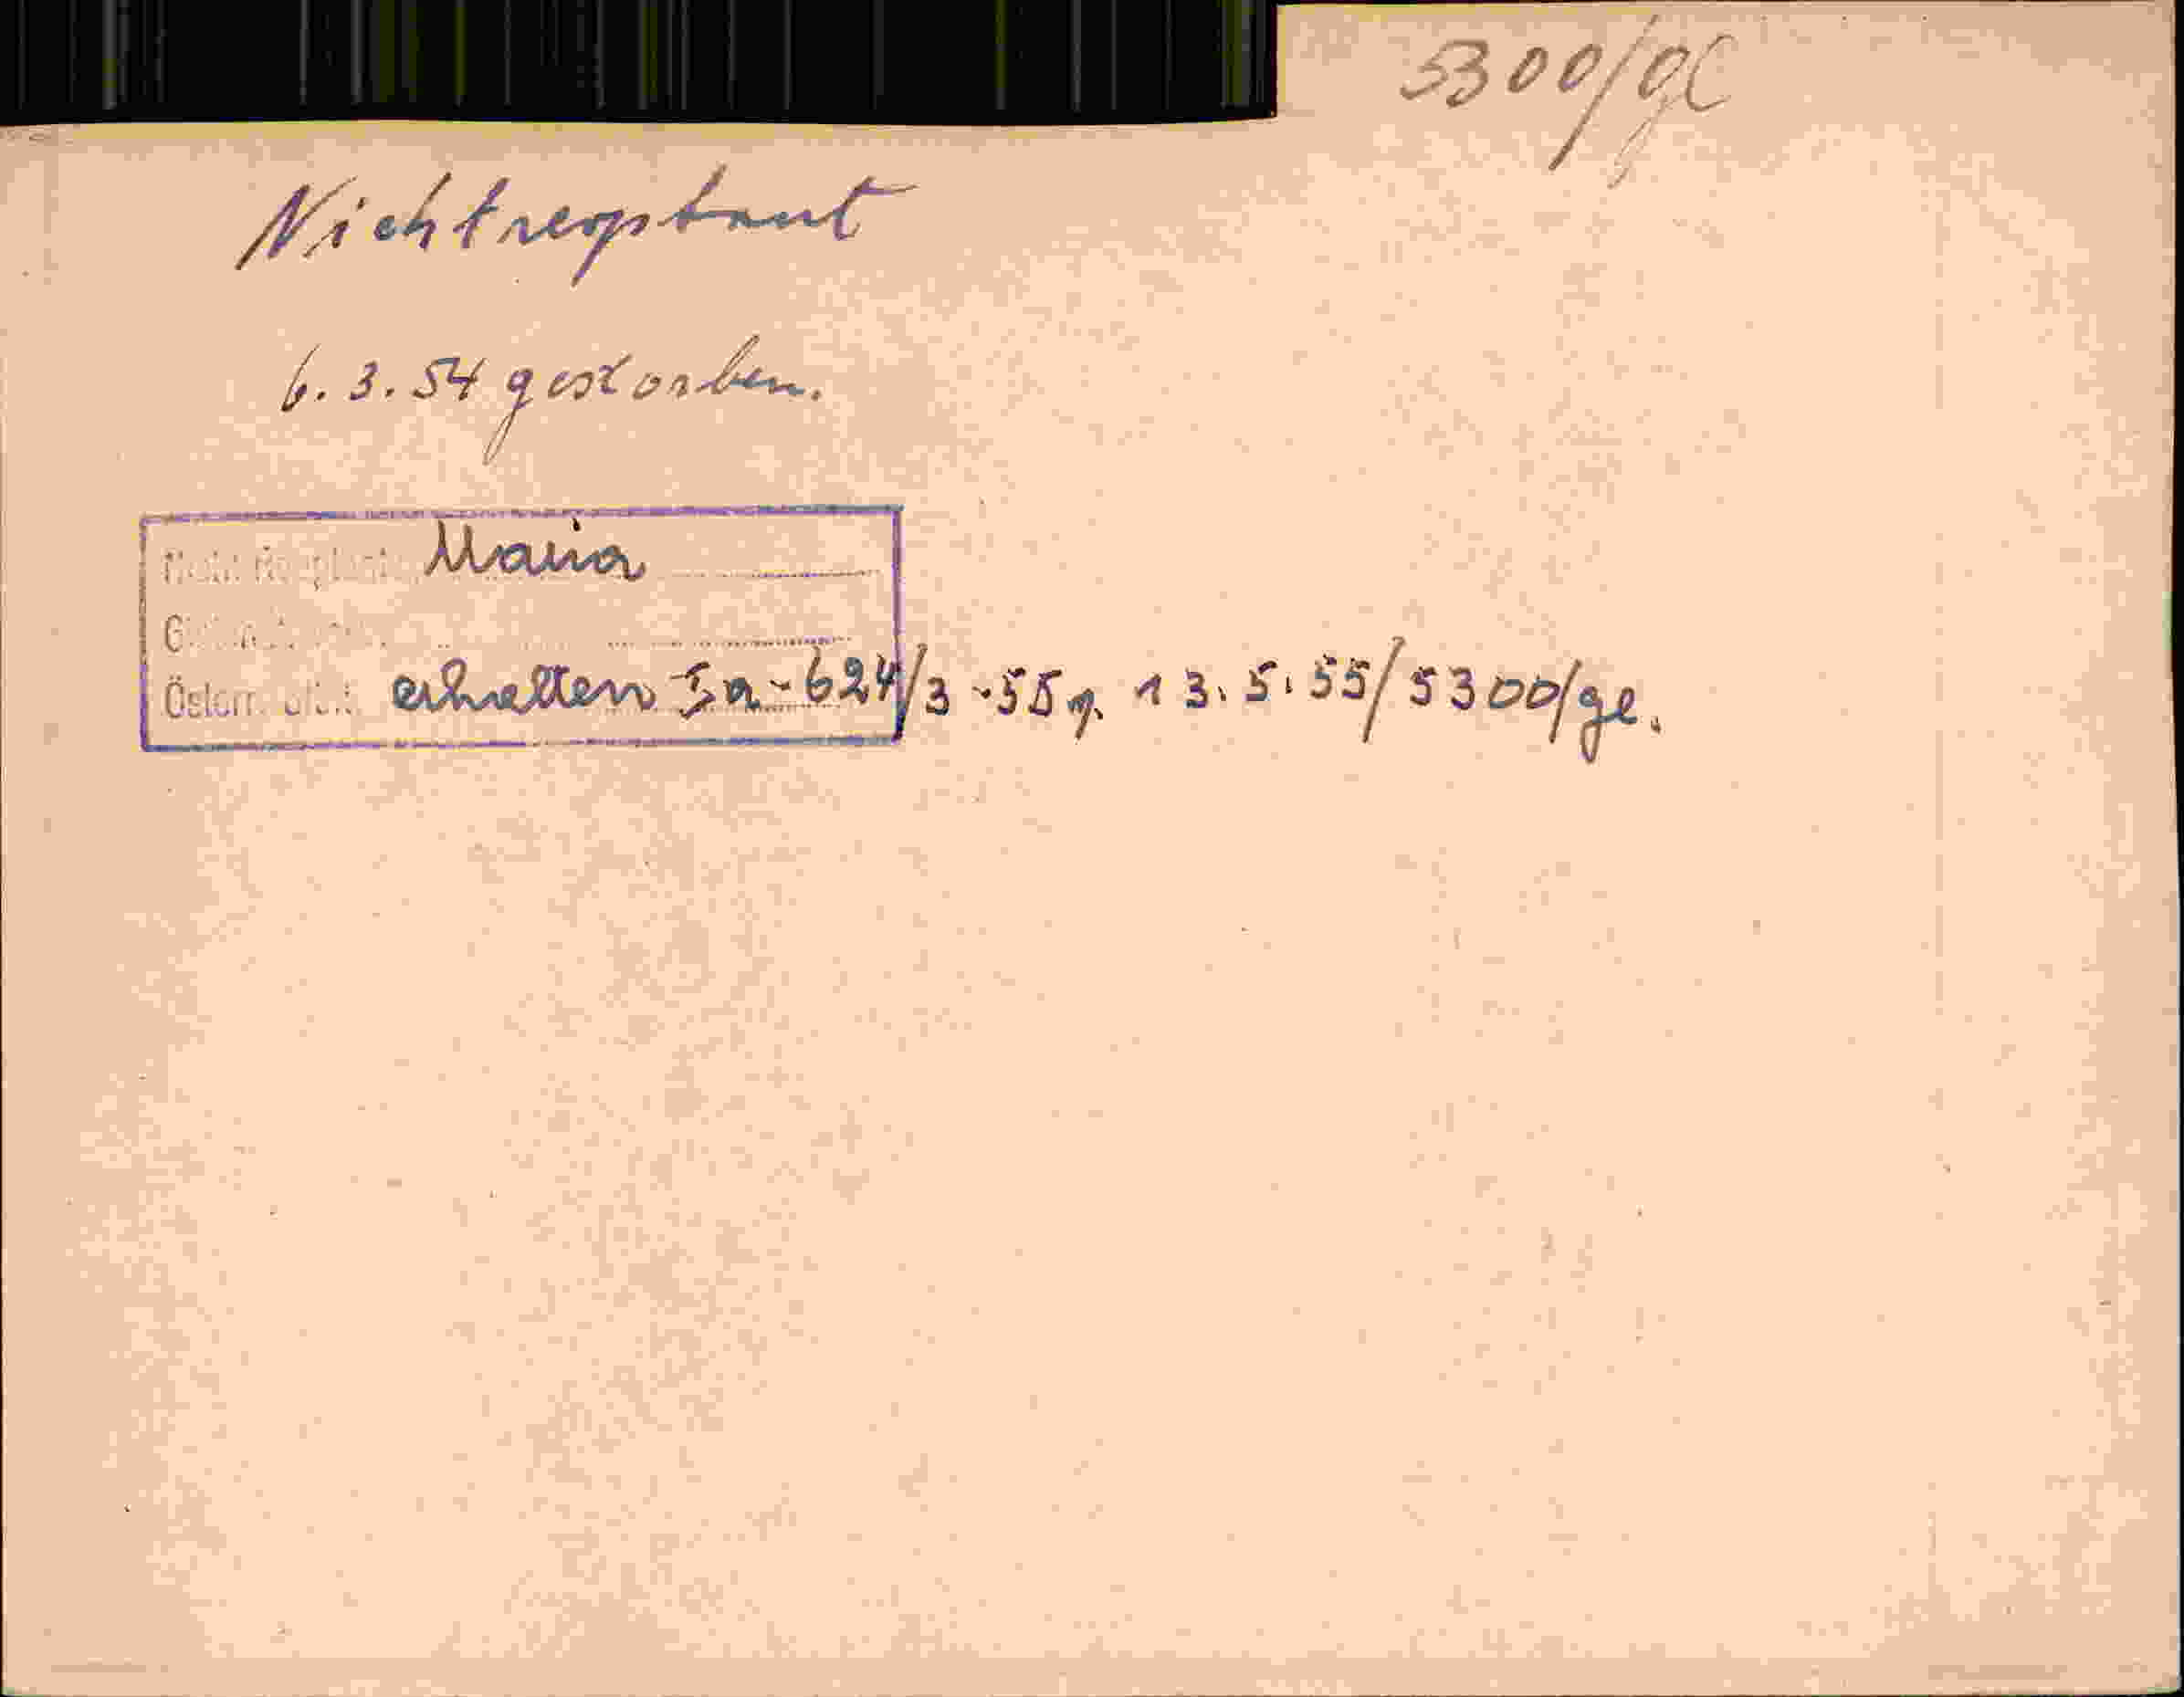 5300/ge
Nichtreoptant
6. 3. 54 gestorben.
Nicht Reoptant Maria
Österr. erhalten Ia-624/3-55 v. 13.5.55/5300/ge.